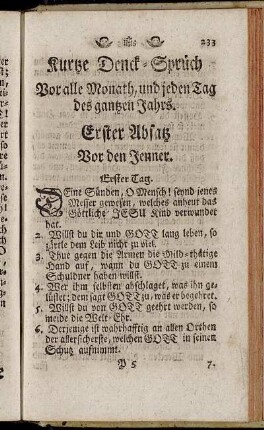 233
Kurtze Denck-Sprüch
Vor alle Monath, und jeden Tag
des gantzen Jahrs.
Erster Absatz
Vor den Jenner.
Erster Tag.
DEine Sünden, O Mensch! seynd jenes
Messer gewesen, welches anheut das
Göttliche JESU Kind verwundet
hat.
2. Willst du dir und GOTT lang leben, so
zärtle dem Leib nicht zu viel.
3. Thue gegen die Armen die Mild-thätige
Hand auf, wann du GOTT zu einem
Schuldner haben willst.
4. Wer ihm selbsten abschlaget, was ihn ge-
lüstet; dem sagt GOTT zu, was er begehret.
5. Willst du von GOTT geehrt werden, so
meide die Welt-Ehr.
6. Derjenige ist wahrhafftig an allen Orthen
der allersicherste, welchen GOTT in seinen
Schutz aufnimmt.
P 5 7.